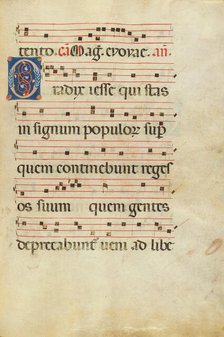 tento. cā Mag̃. evovae. añ.
O radix iesse qui stas
in signum populoꝝ sup̄
quem continebunt reges
os suum quem gentes
deprecabunt̃ veni ad libe